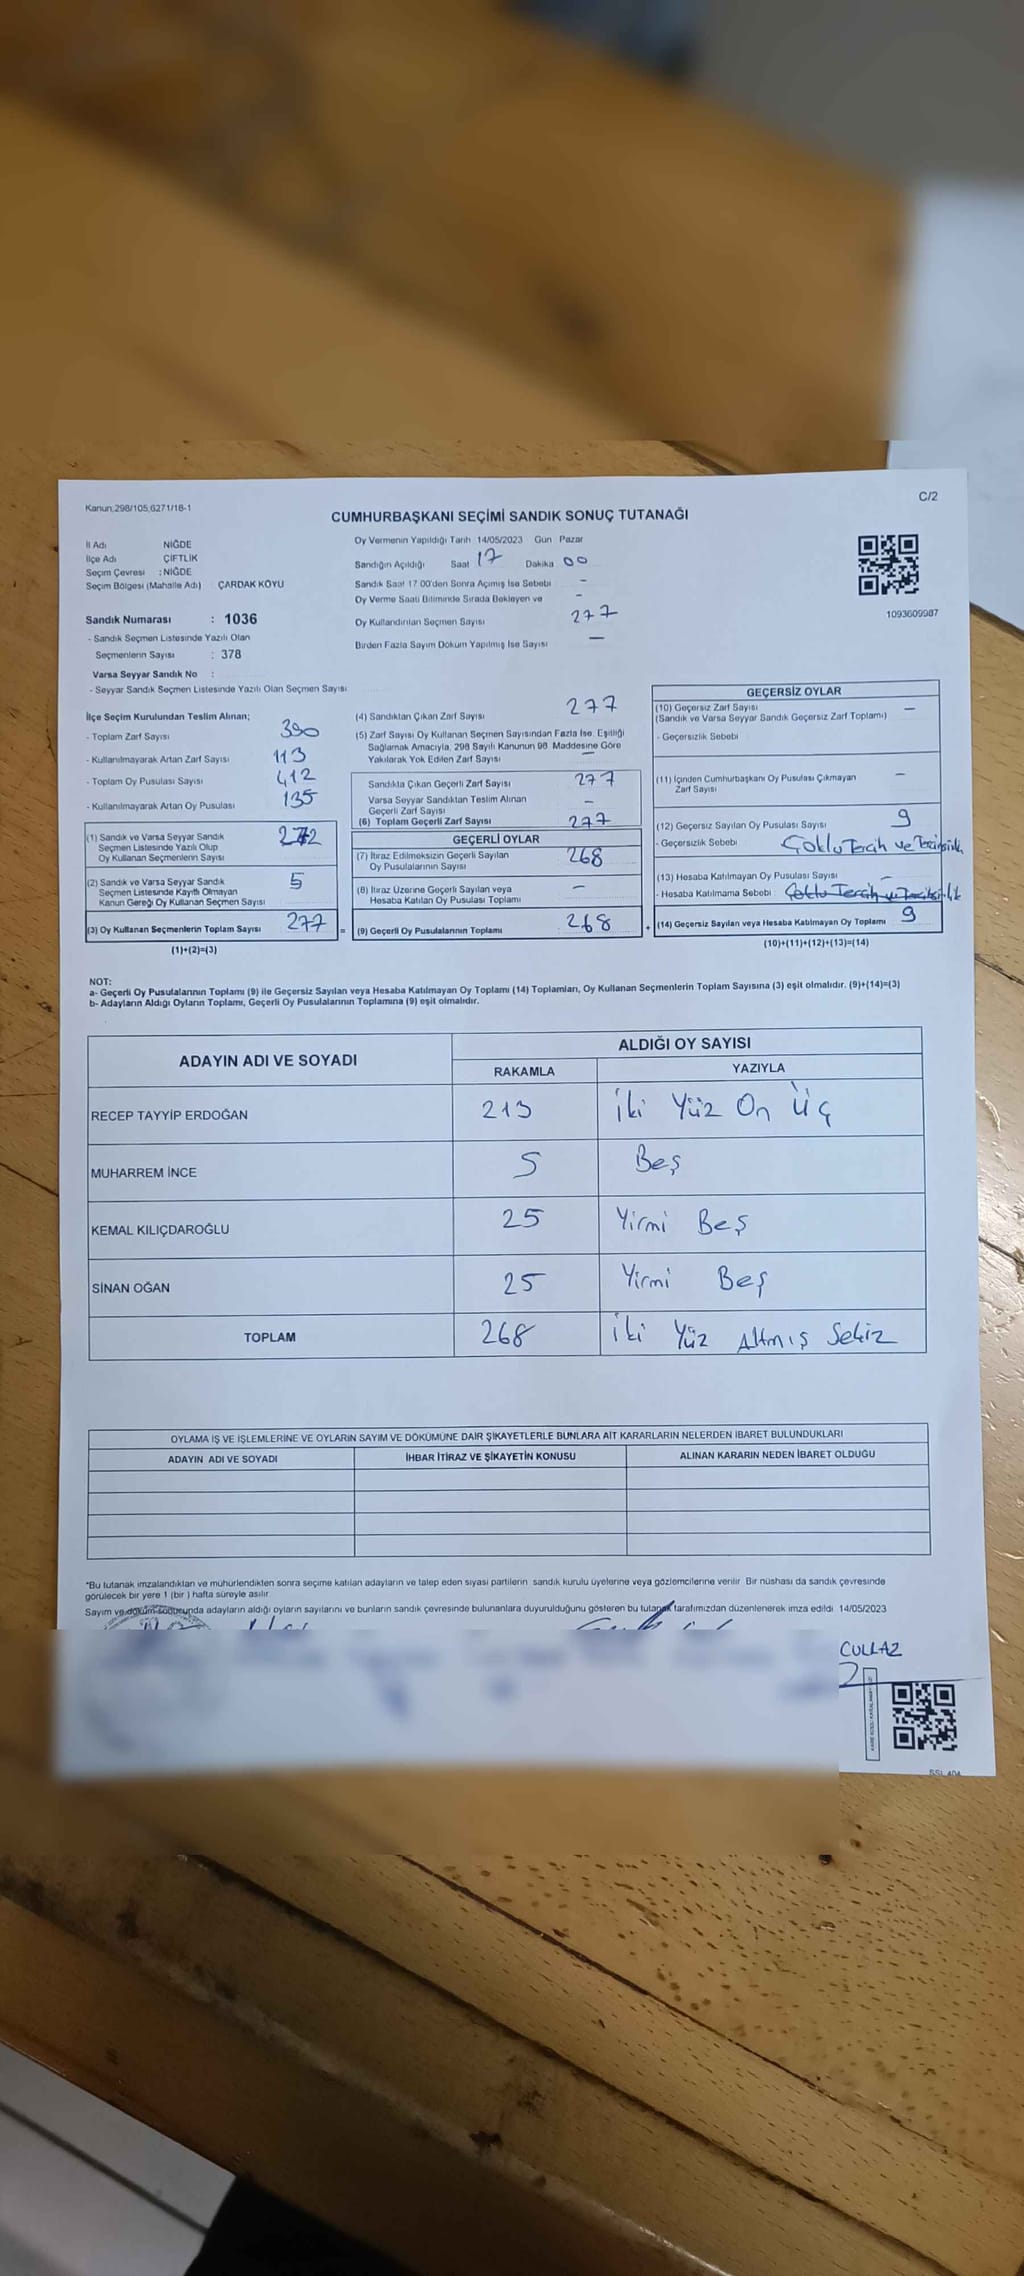 Kanun:298/105,6271/16-1
C/2
CUMHURBAŞKANI SEÇİMİ SANDIK SONUÇ TUTANAĞI
İl Adı NİĞDE
İlçe Adı ÇİFTLİK
Seçim Çevresi : NİĞDE
Seçim Bölgesi (Mahalle Adı) ÇARDAK KÖYÜ
Sandık Numarası : 1036
- Sandık Seçmen Listesinde Yazılı Olan
Seçmenlerin Sayısı : 378
Varsa Seyyar Sandık No :
- Seyyar Sandık Seçmen Listesinde Yazılı Olan Seçmen Sayısı
Oy Vermenin Yapıldığı Tarih 14/05/2023 Gün Pazar
Sandığın Açıldığı Saat 17 Dakika 00
Sandık Saat 17 00'den Sonra Açımış İse Sebebi -
Oy Verme Saati Bitiminde Sırada Bekleyen ve -
Oy Kullandırılan Seçmen Sayısı 277
Birden Fazla Sayım Döküm Yapılmış İse Sayısı —
1093609987
İlçe Seçim Kurulundan Teslim Alınan;
- Toplam Zarf Sayısı 390
- Kullanılmayarak Artan Zarf Sayısı 113
- Toplam Oy Pusulası Sayısı 412
- Kullanılmayarak Artan Oy Pusulası 135
(1) Sandık ve Varsa Seyyar Sandık 272
Seçmen Listesinde Yazılı Olup
Oy Kullanan Seçmenlerin Sayısı
(2) Sandık ve Varsa Seyyar Sandık 5
Seçmen Listesinde Kayıtlı Olmayan
Kanun Gereği Oy Kullanan Seçmen Sayısı
(3) Oy Kullanan Seçmenlerin Toplam Sayısı 277 =
(1)+(2)=(3)
(4) Sandıktan Çıkan Zarf Sayısı 277
(5) Zarf Sayısı Oy Kullanan Seçmen Sayısından Fazla İse, Eşitliği
Sağlamak Amacıyla, 298 Sayılı Kanunun 98 Maddesine Göre
Yakılarak Yok Edilen Zarf Sayısı —
Sandıkta Çıkan Geçerli Zarf Sayısı 277
Varsa Seyyar Sandıktan Teslim Alınan
Geçerli Zarf Sayısı -
(6) Toplam Geçerli Zarf Sayısı 277
GEÇERLİ OYLAR
(7) İtiraz Edilmeksizin Geçerli Sayılan 268
Oy Pusulalarının Sayısı
(8) İtiraz Üzerine Geçerli Sayılan veya -
Hesaba Katılan Oy Pusulası Toplamı
(9) Geçerli Oy Pusulalarının Toplamı 268 +
GEÇERSİZ OYLAR
(10) Geçersiz Zarf Sayısı —
(Sandık ve Varsa Seyyar Sandık Geçersiz Zarf Toplamı)
- Geçersizlik Sebebi
(11) İçinden Cumhurbaşkanı Oy Pusulası Çıkmayan -
Zarf Sayısı
(12) Geçersiz Sayılan Oy Pusulası Sayısı 9
- Geçersizlik Sebebi Çoklu Tercih ve
(13) Hesaba Katılmayan Oy Pusulası Sayısı -
- Hesaba Katılmama Sebebi Çoklu Tercih
(14) Geçersiz Sayılan veya Hesaba Katılmayan Oy Toplamı 9
(10)+(11)+(12)+(13)=(14)
NOT:
a- Geçerli Oy Pusulalarının Toplamı (9) ile Geçersiz Sayılan veya Hesaba Katılmayan Oy Toplamı (14) Toplamları, Oy Kullanan Seçmenlerin Toplam Sayısına (3) eşit olmalıdır. (9)+(14)=(3)
b- Adayların Aldığı Oyların Toplamı, Geçerli Oy Pusulalarının Toplamına (9) eşit olmalıdır.
ADAYIN ADI VE SOYADI ALDIĞI OY SAYISI
RAKAMLA YAZIYLA
RECEP TAYYİP ERDOĞAN 213 İki Yüz On Üç
MUHARREM İNCE 5 Beş
KEMAL KILIÇDAROĞLU 25 Yirmi Beş
SİNAN OĞAN 25 Yirmi Beş
TOPLAM 268 İki Yüz Altmış Sekiz
OYLAMA İŞ VE İŞLEMLERİNE VE OYLARIN SAYIM VE DÖKÜMÜNE DAİR ŞİKAYETLERLE BUNLARA AİT KARARLARIN NELERDEN İBARET BULUNDUKLARI
ADAYIN ADI VE SOYADI İHBAR İTİRAZ VE ŞİKAYETİN KONUSU ALINAN KARARIN NEDEN İBARET OLDUĞU
*Bu tutanak imzalandıktan ve mühürlendikten sonra seçime katılan adayların ve talep eden siyasi partilerin sandık kurulu üyelerine veya gözlemcilerine verilir. Bir nüshası da sandık çevresinde
görülecek bir yere 1 (bir) hafta süreyle asılır.
Sayım ve döküm sonucunda adayların aldığı oyların sayılarını ve bunların sandık çevresinde bulunanlara duyurulduğunu gösteren bu tutanak tarafımızdan düzenlenerek imza edildi 14/05/2023
CULLAZ